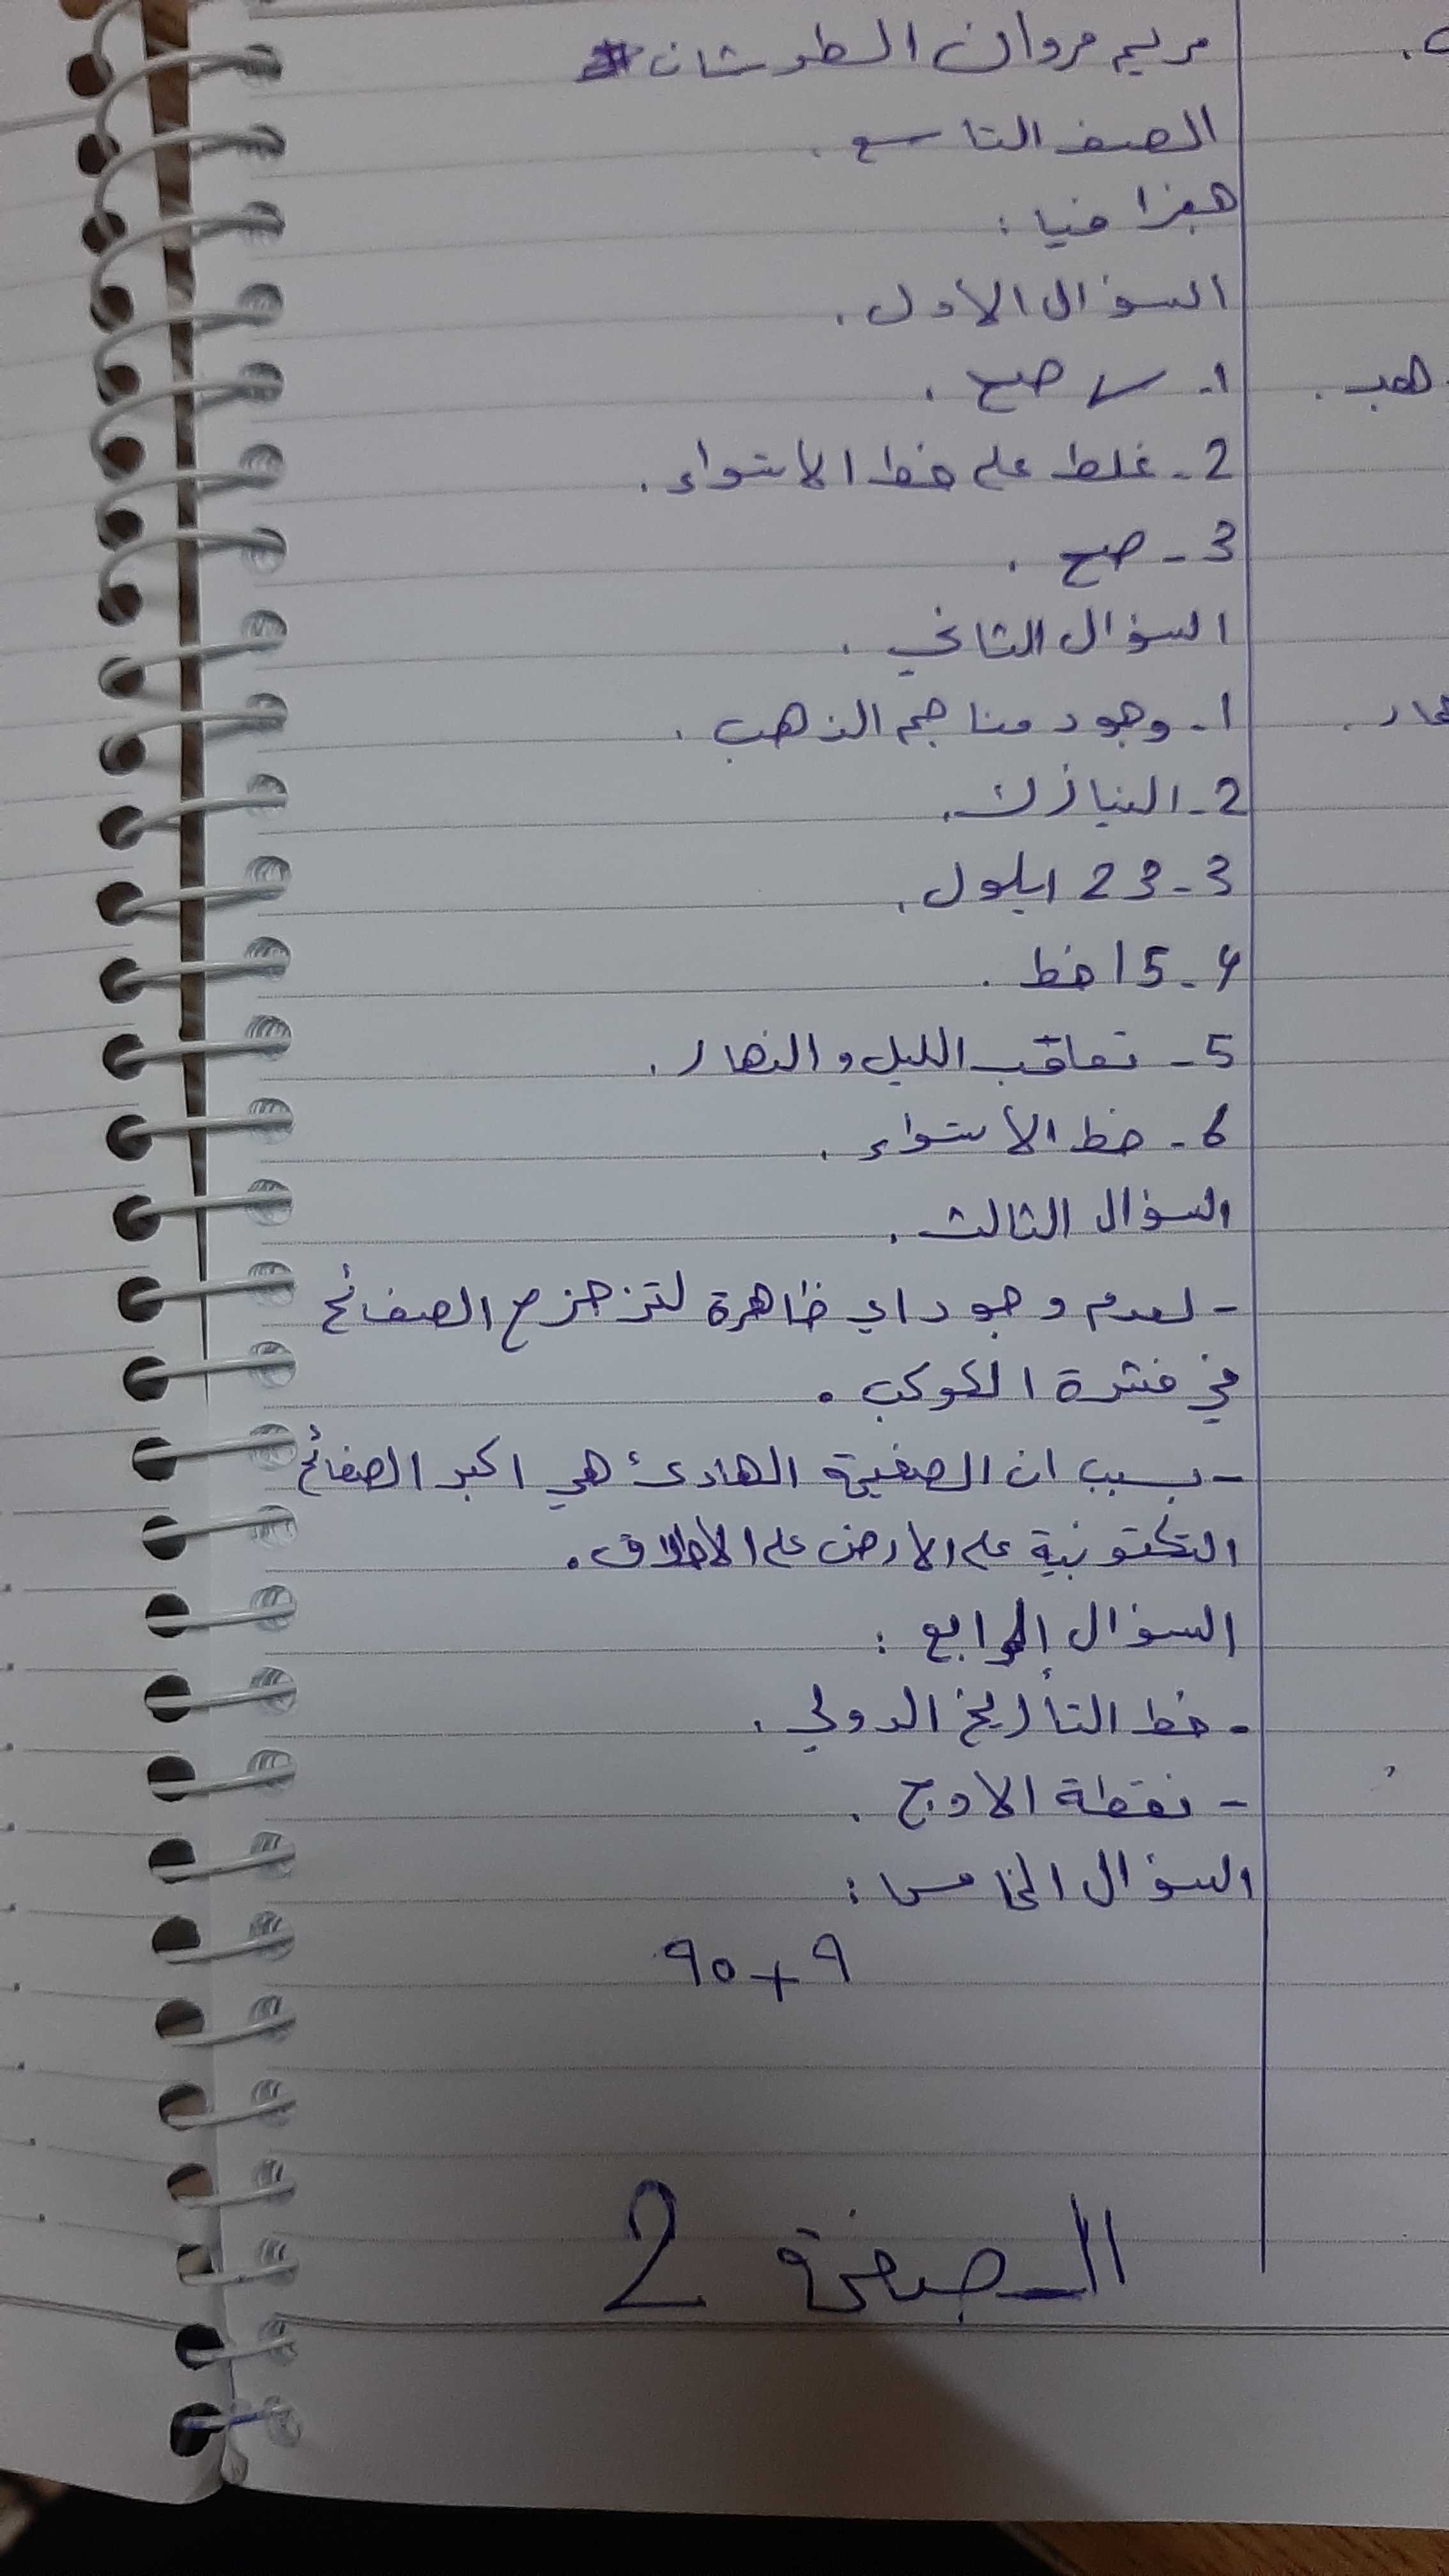 مريم مروان الطوشان
الصف التاسع.
جغرافيا:
السؤال الأول.
1- ✓ صح.
2- غلط على خط الاستواء.
3- صح.
السؤال الثاني.
1- وجود مناجم الذهب.
2- النيازك.
3- 23 ايلول.
4- 15 خط.
5- تعاقب الليل والنهار.
6- خط الاستواء.
السؤال الثالث.
- لعدم وجود اي ظاهرة لتزحزح الصفائح
في قشرة الكوكب.
- بسبب ان الصفيحة الهادئ هي اكبر الصفائح
التكتونية على الارض على الأطلاق.
السؤال الرابع:
- خط التأريخ الدولي.
- نقطة الاوج.
السؤال الخامس:
90+9
الصفحة 2